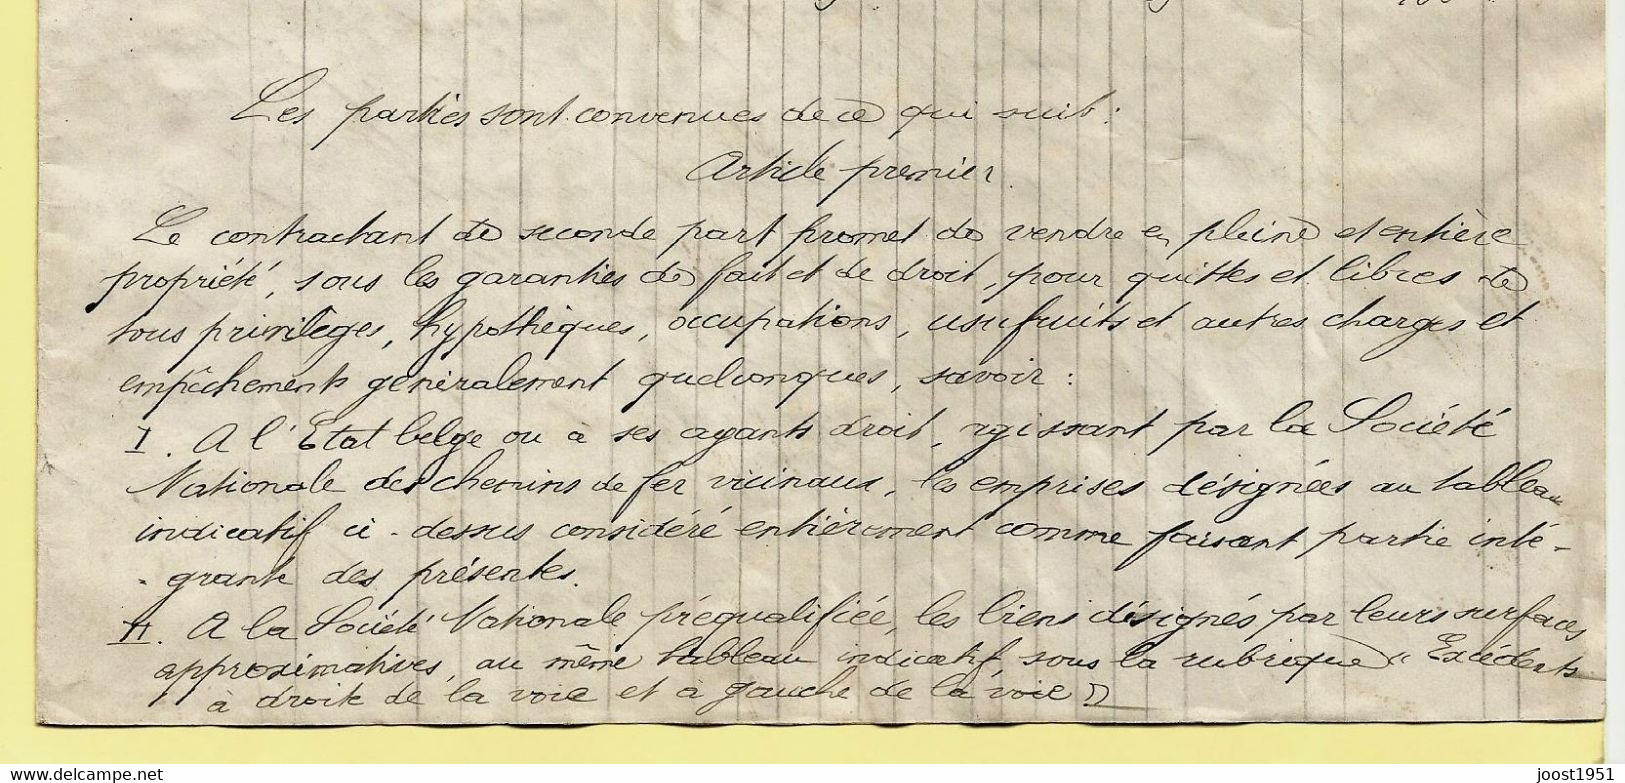 Les parties sont convenues de ce qui suit :
Article premier
Le contractant de seconde part promet de vendre en pleine et entière
propriété, sous les garanties de fait et de droit, pour quittes et libres de
tous privilèges, hypothèques, occupations, usufruits et autres charges et
empêchements généralement quelconques, savoir :
I. A l'Etat belge ou à ses ayants droit, agissant par la Société
Nationale des chemins de fer vicinaux, les emprises désignées au tableau
indicatif ci-dessus considéré entièrement comme faisant partie inté-
-grante des présentes.
II. A la Société Nationale préqualifiée, les biens désignés par leurs surfaces
approximatives, au même tableau indicatif, sous la rubrique "Excédents
à droite de la voie et à gauche de la voie"
www.delcampe.net
joost1951